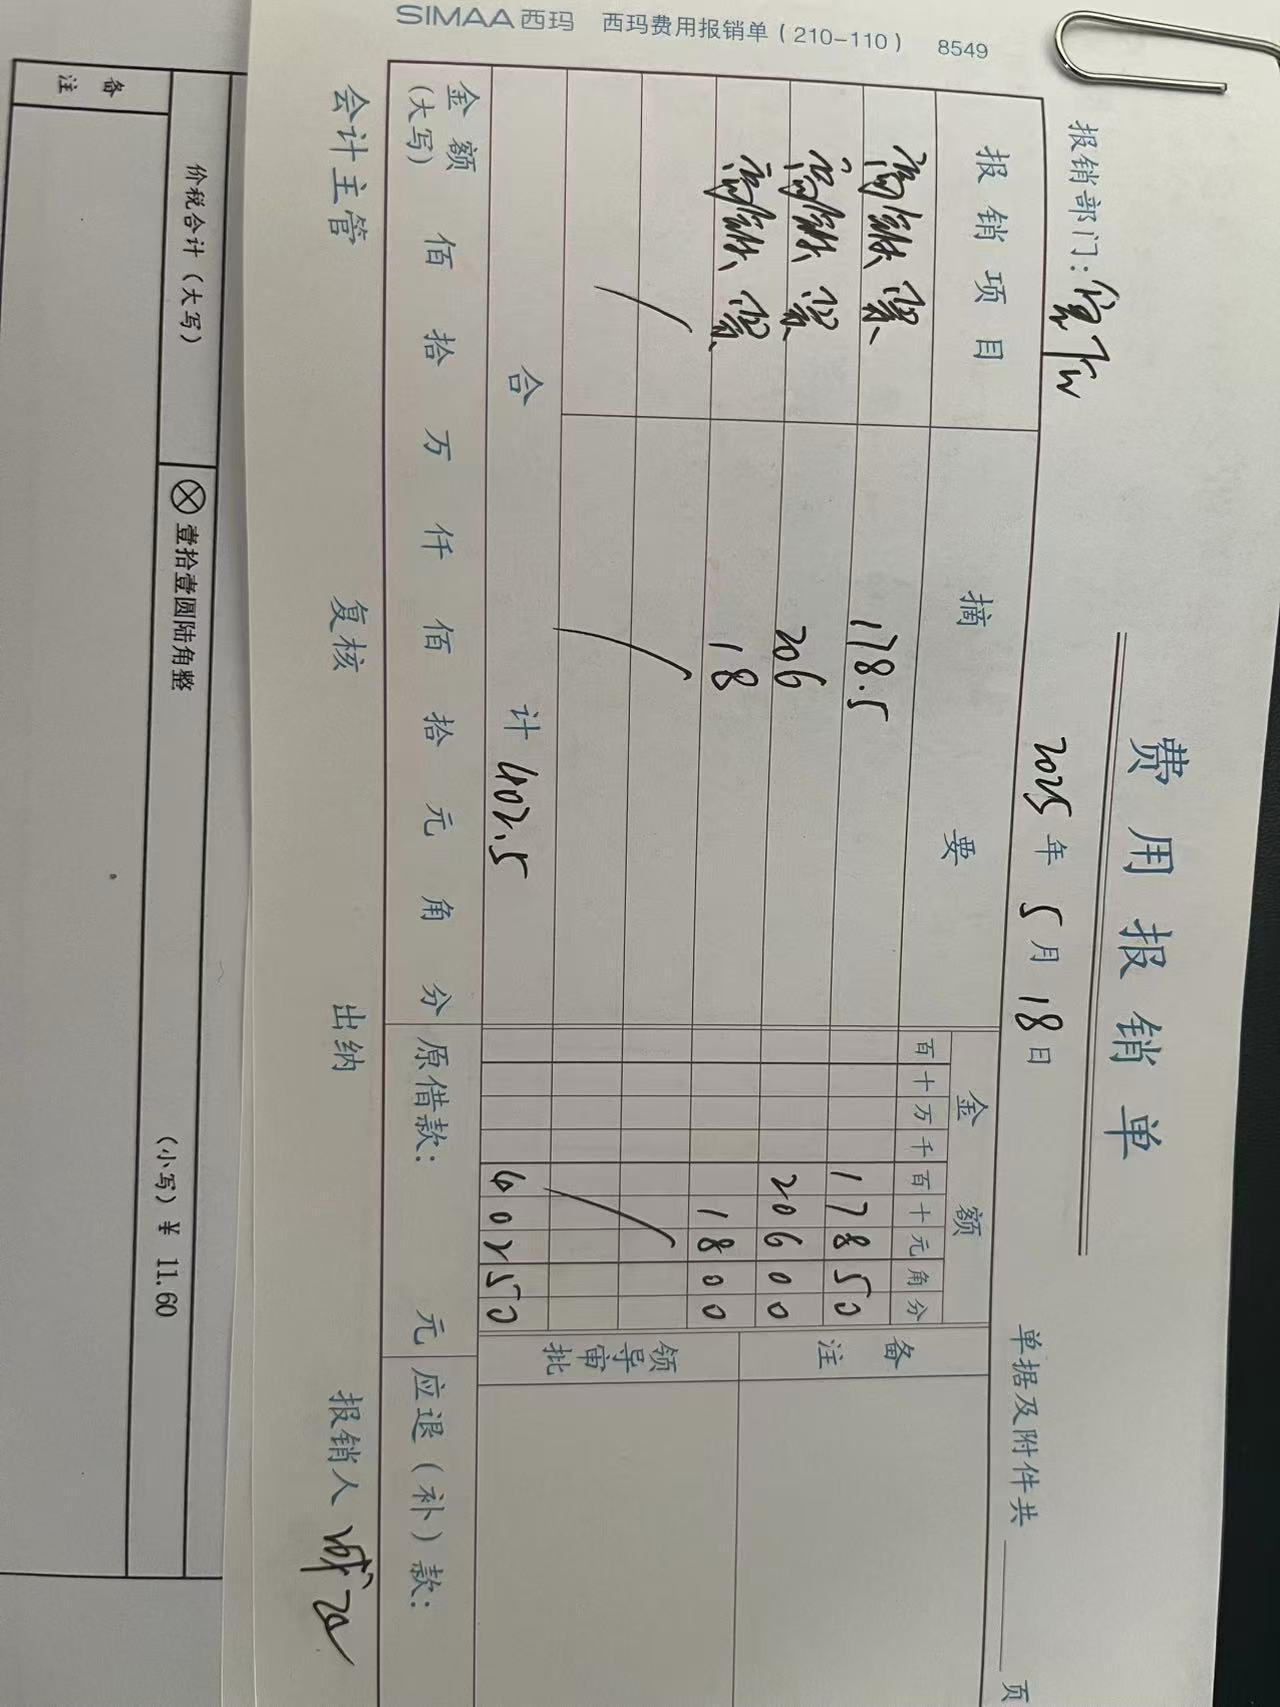 费用报销单
报销部门：
2025年5月18日
单据及附件共 页
报销项目 摘要 金额 备注
百十万千百十元角分
高铁票 178.5 17850
高铁票 206 20600
高铁票 18 1800
领导审批
合计 402.5 40250
金额(大写) 佰拾万仟佰拾元角分 原借款： 元 应退(补)款：
会计主管 复核 出纳 报销人
SIMAA西玛 西玛费用报销单(210-110) 8549
价税合计(大写) ⊗壹拾壹圆陆角整 (小写)¥ 11.60
备注